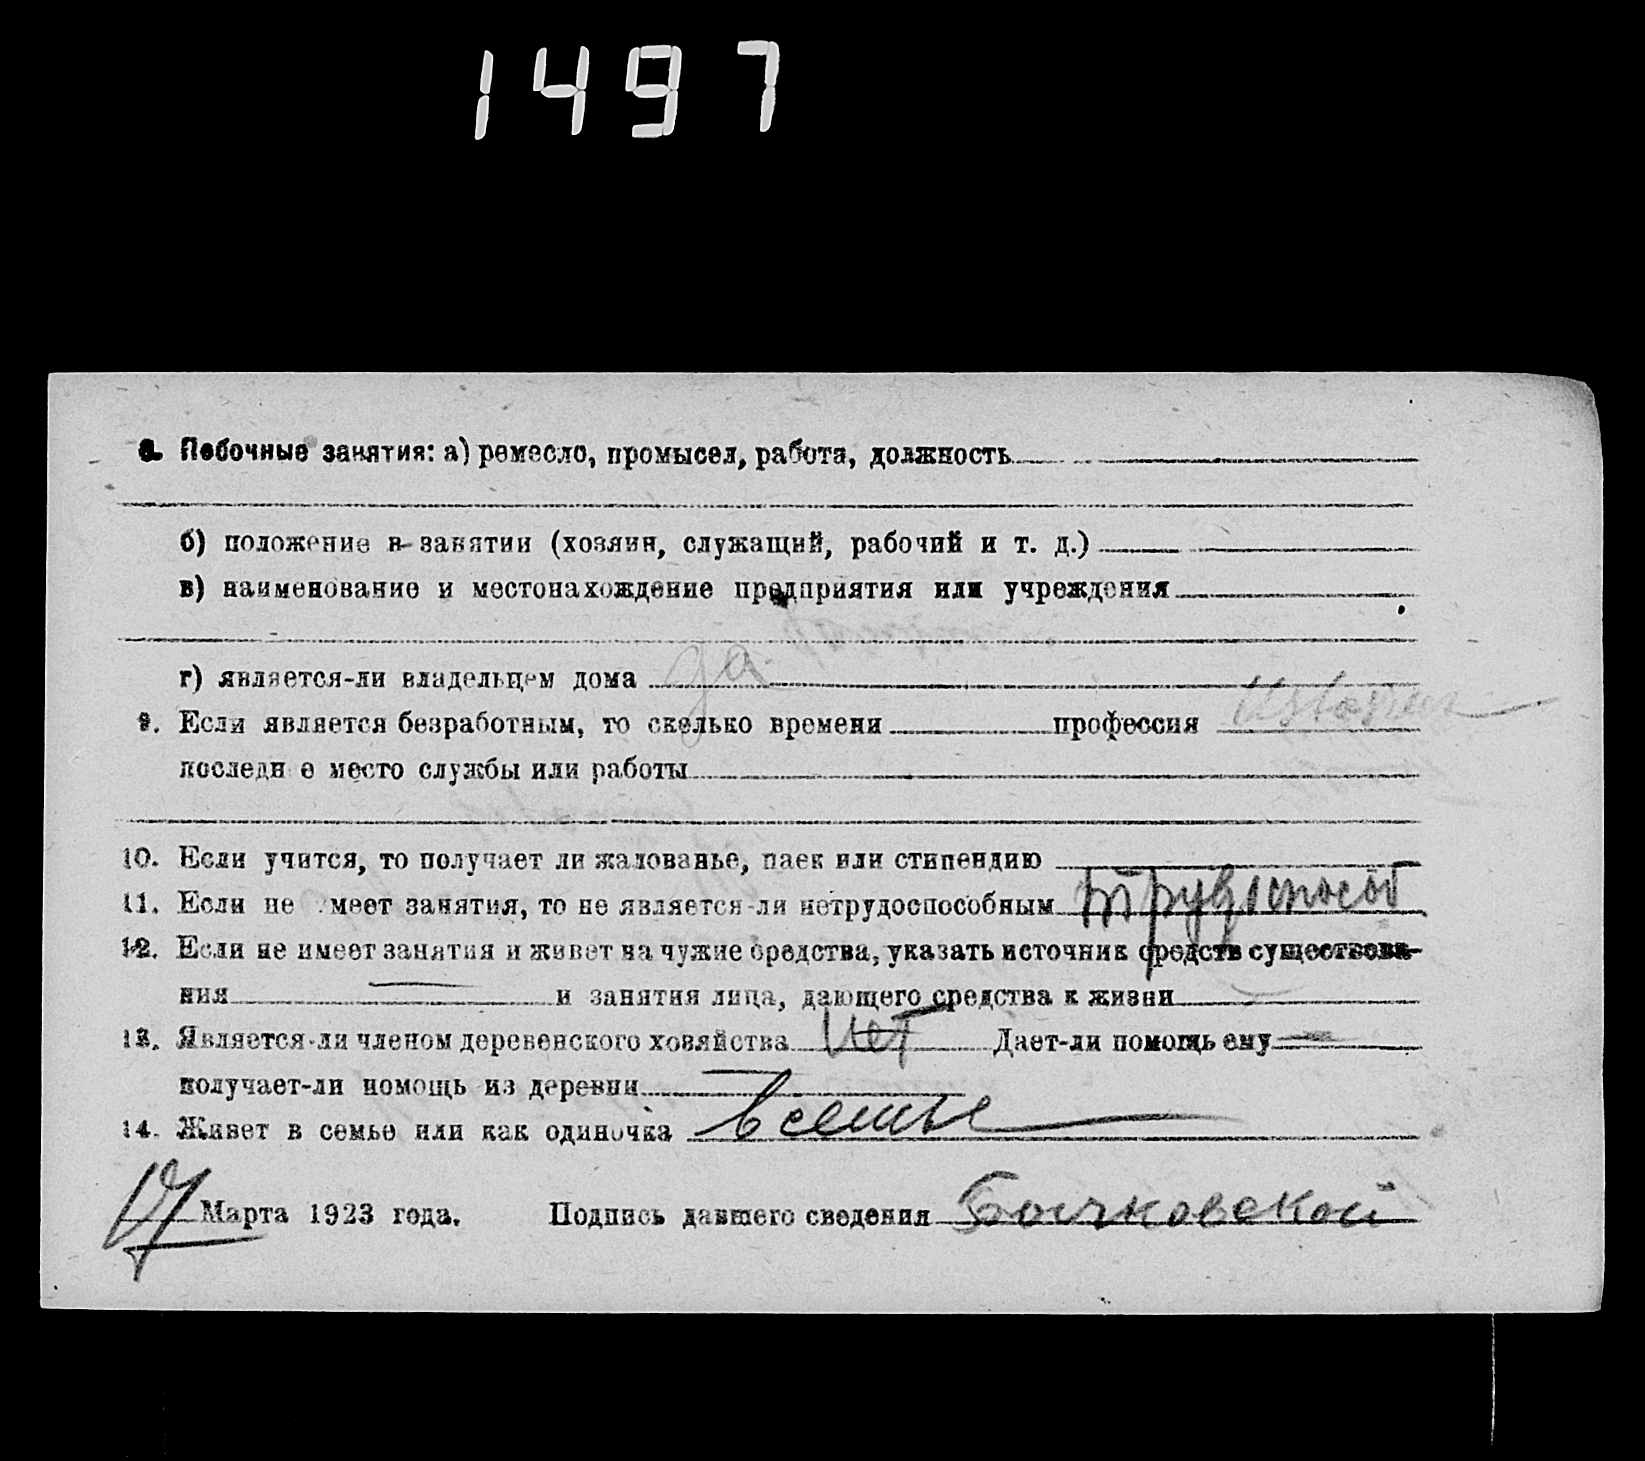 1497
8. Побочные занятия: а) ремесло, промысел, работа, должность
б) положение в занятии (хозяин, служащий, рабочий и т. д.)
в) наименование и местонахождение предприятия или учреждения
г) является-ли владельцем дома да
9. Если является безработным, то сколько времени профессия
последн е место службы или работы
10. Если учится, то получает ли жалованье, паек или стипендию
11. Если не меет занятия, то не является-ли нетрудоспособным трудспособ
12. Если не имеет занятия и живет на чужие средства, указать источник средств существова-
ния — и занятия лица, дающего средства к жизни —
13. Является-ли членом деревенского хозяйства нет Дает-ли помощь ему —
получает-ли помощь из деревни —
14. Живет в семье или как одиночка в семье
17 Марта 1923 года. Подпись давшего сведения